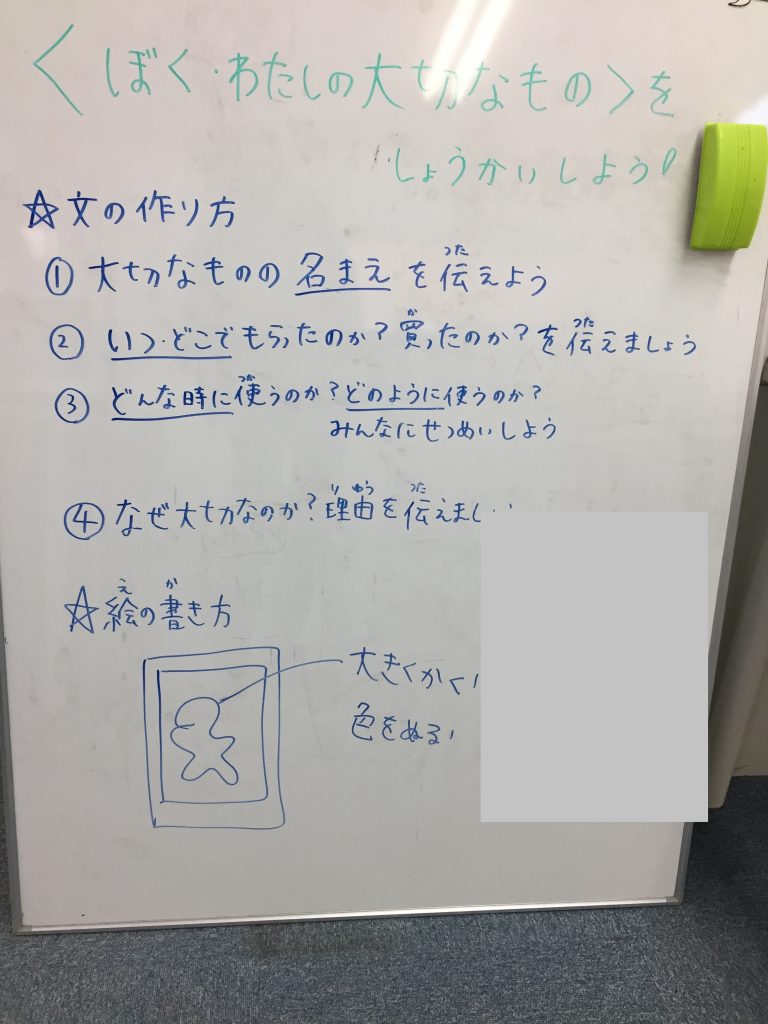 〈ぼく・わたしの大切なもの〉を
しょうかいしよう!
☆文の作り方
① 大切なものの名まえを伝えよう
② いつ・どこでもらったのか?買ったのか?を伝えましょう
③ どんな時に使うのか?どのように使うのか?
みんなにせつめいしよう
④ なぜ大切なのか?理由を伝えまし
☆絵の書き方
大きくかく!
色をぬる!